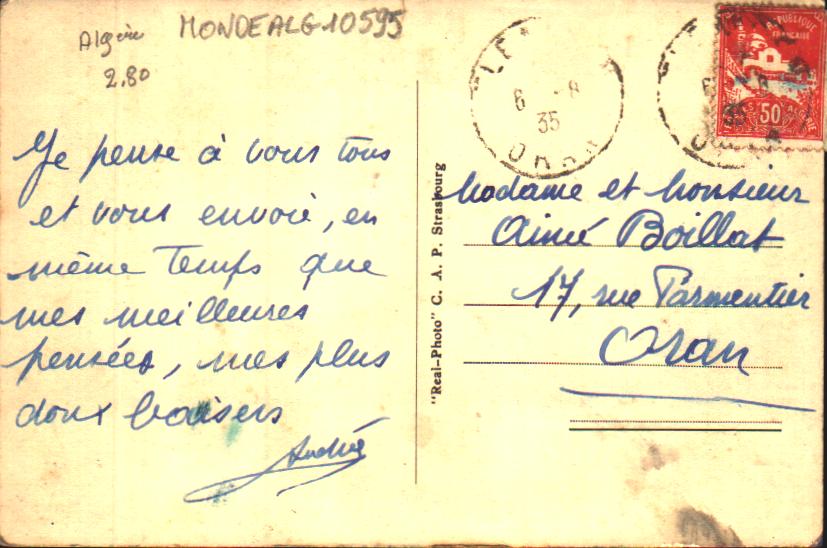 Algérie
2.80
MONDEALG10595
Je pense à vous tous
et vous envoie, en
même Temps que
mes meilleures
pensées, mes plus
doux baisers
André
"Real-Photo" C. A. P. Strasbourg
6 -8
35
ORAN
6 -8
35
REPUBLIQUE
FRANÇAISE
50
POSTES
ALGERIE
Madame et Monsieur
Aimé Boillat
17, rue Parmentier
Oran